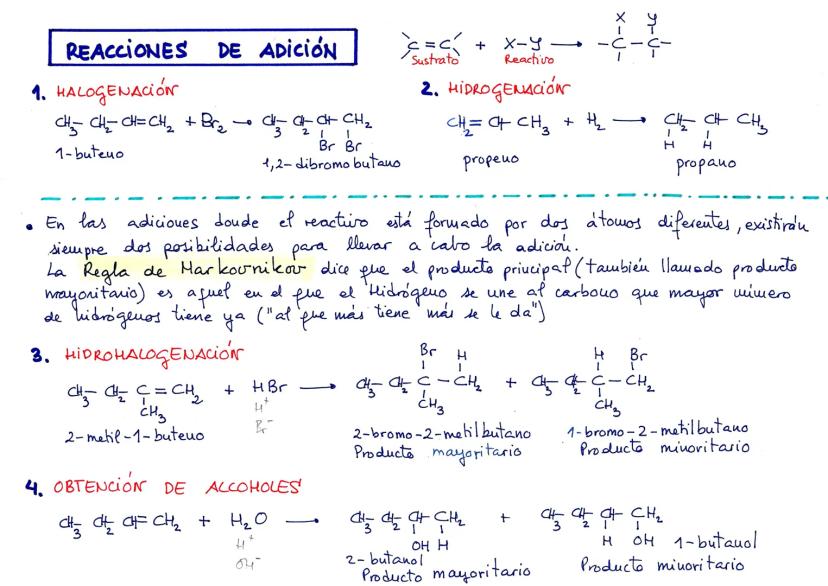 REACCIONES DE ADICIÓN
C=C + X-Y → -C-C-
X Y
Sustrato Reactivo
1. HALOGENACIÓN
CH3-CH2-CH=CH2 + Br2 → CH3 CH2 CH CH2
Br Br
1-buteno 1,2-dibromobutano
2. HIDROGENACIÓN
CH2=CH CH3 + H2 → CH2 CH CH3
H H
propeno propano
• En las adiciones donde el reactivo está formado por dos átomos diferentes, existirán
siempre dos posibilidades para llevar a cabo la adición.
La Regla de Markovnikov dice que el producto principal (también llamado producto
mayoritario) es aquel en el que el Hidrógeno se une al carbono que mayor número
de hidrógenos tiene ya ("al que más tiene más se le da")
3. HIDROHALOGENACIÓN
Br H H Br
CH3-CH2 C=CH2 + HBr → CH3-CH2 C-CH2 + CH3-CH2 C-CH2
CH3 H+ CH3 CH3
Br-
2-metil-1-buteno 2-bromo-2-metilbutano 1-bromo-2-metilbutano
Producto mayoritario Producto minoritario
4. OBTENCIÓN DE ALCOHOLES
CH3 CH2 CH=CH2 + H2O → CH3 CH2 CH CH2 + CH3 CH2 CH CH2
H+ OH H H OH 1-butanol
OH-
2-butanol
Producto mayoritario Producto minoritario